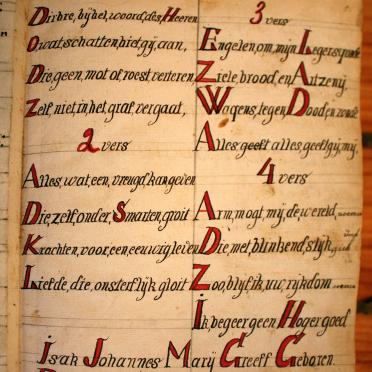 Dirbre, bijbel, woord, des, Heeren
O, wat, schatten, biet, gij, aan,
Die, geen, mot, of, roest, verteren,
Zelf, niet, in, het, graf, vergaat,
2 vers
Alles, wat, een, vreugd, kan, geven
Die, zelf, onder, Smarten, groit
Krachten, voor, een, eeuwig, leven
Liefde, die, onsterflijk, gloit
3 vers
Engelen, om, mijn, Legersponde
Ziele, brood, en, Artzenij,
Wapens, tegen, Dood, en, zonde
Alles, geeft, alles, geeft, gij, mij,
4 vers
Arm, mogt, mij, de, wereld,
Die, met, blinkend, slijk,
Zoo, blyf, ik, uw, rijkdom
Ik, begeer, geen, Hoger, goed
Isak Johannes Marij Greeff Geboren